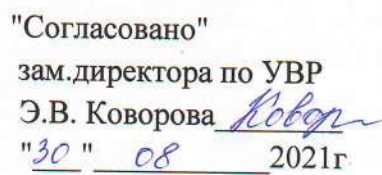 "Согласовано"
зам.директора по УВР
Э.В. Коворова Ковор
"30" 08 2021г